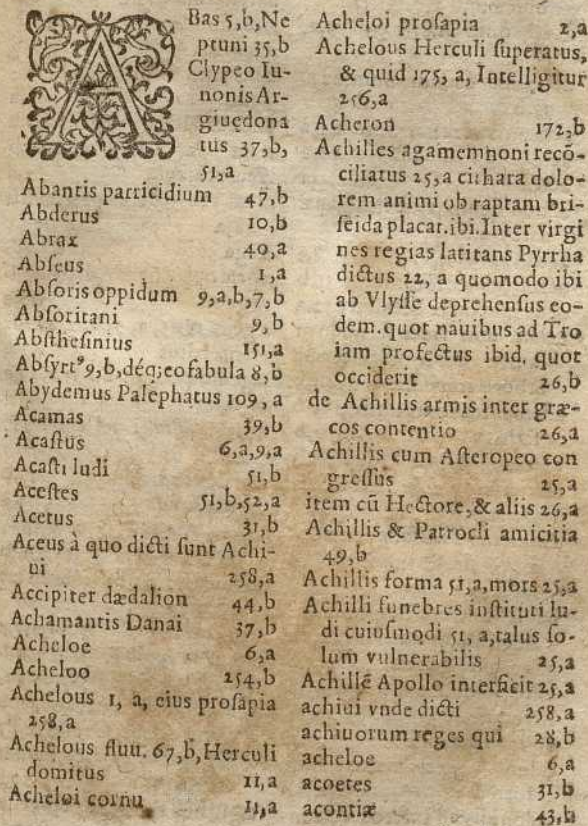 ABas 5,b,Ne
ptuni 35,b
Clypeo Iu-
nonis Ar-
giuędona
tus 37,b,
51,a
Abantis parricidium 47,b
Abderus 10,b
Abrax 40,a
Abſeus 1,a
Abſoris oppidum 9,a,b,7,b
Abſoritani 9,b
Abſtheſinius 151,a
Abſyrtꝰ9,b,déq;eo fabula 8,b
Abydemus Palephatus 109, a
Acamas 39,b
Acaſtus 6,a,9,a
Acaſti ludi 51,b
Aceſtes 51,b,52,a
Acetus 31,b
Aceus à quo dicti ſunt Achi-
ui 258,a
Accipiter dædalion 44,b
Achamantis Danai 37,b
Acheloe 6,a
Acheloo 254,b
Achelous 1, a, eius proſapia
258,a
Achelous fluu. 67,b,Herculi
domitus 11,a
Acheloi cornu 11,a
Acheloi proſapia 2,a
Achelous Herculi ſuperatus,
& quid 175, a, Intelligitur
256,a
Acheron 172,b
Achilles agamemnoni recõ-
ciliatus 25,a cithara dolo-
rem animi ob raptam bri-
ſeida placat.ibi.Inter virgi
nes regias latitans Pyrrha
dictus 22, a quomodo ibi
ab Vlyſſe deprehenſus eo-
dem.quot nauibus ad Tro
iam profectus ibid. quot
occiderit 26,b
de Achillis armis inter græ-
cos contentio 26,a
Achillis cum Aſteropeo con
greſſus 25,a
item cũ Hectore,& aliis 26,a
Achillis & Patrocli amicitia
49,b
Achillis forma 51,a,mors 25,a
Achilli funebres inſtituti lu-
di cuiuſmodi 51, a,talus ſo-
lum vulnerabilis 25,a
Achillẽ Apollo interficit 25,a
achiui vnde dicti 258,a
achiuorum reges qui 28,b
acheloe 6,a
acoetes 31,b
acontiæ 43,b